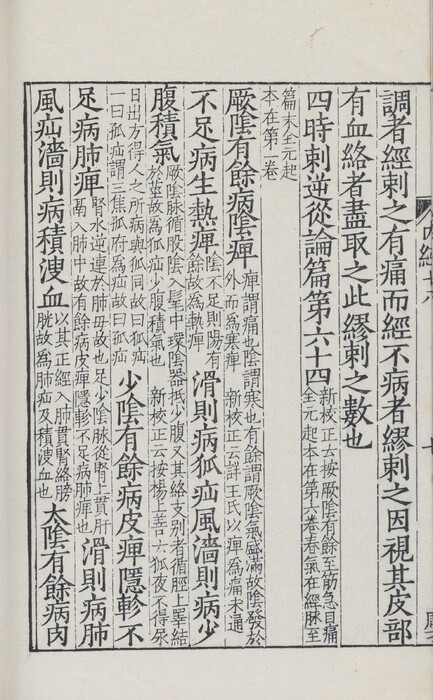 調者經刺之有痛而經不病者繆刺之因視其皮部
有血絡者盡取之此繆刺之數也
四時刺逆從論篇第六十四新校正云按厥陰有餘至筋急目痛
全元起本在第六卷春氣在經脉至
篇末全元起
本在第一卷
厥陰有餘病陰痺痺謂痛也陰謂寒也有餘謂厥陰氣盛滿故陰發於
外而爲寒痺 新校正云詳王氏以痺爲痛未通
不足病生熱痺陰不足則陽有
餘故爲熱痺滑則病狐疝風濇則病少
腹積氣厥陰脉循股陰入髦中環陰器抵少腹又其絡支別者循脛上睾結
於莖故爲狐疝少腹積氣也 新校正云按楊上善云狐夜不得尿
日出方得人之所病與狐同故曰狐疝
一曰狐疝謂三焦孤府爲疝故曰狐疝少陰有餘病皮痺隱軫不
足病肺痺腎水逆連於肺母故也足少陰脉從腎上貫肝
鬲入肺中故有餘病皮痺隱軫不足病肺痺也滑則病肺
風疝濇則病積溲血以其正經入肺貫腎絡膀
胱故爲肺疝及積溲血也太陰有餘病肉